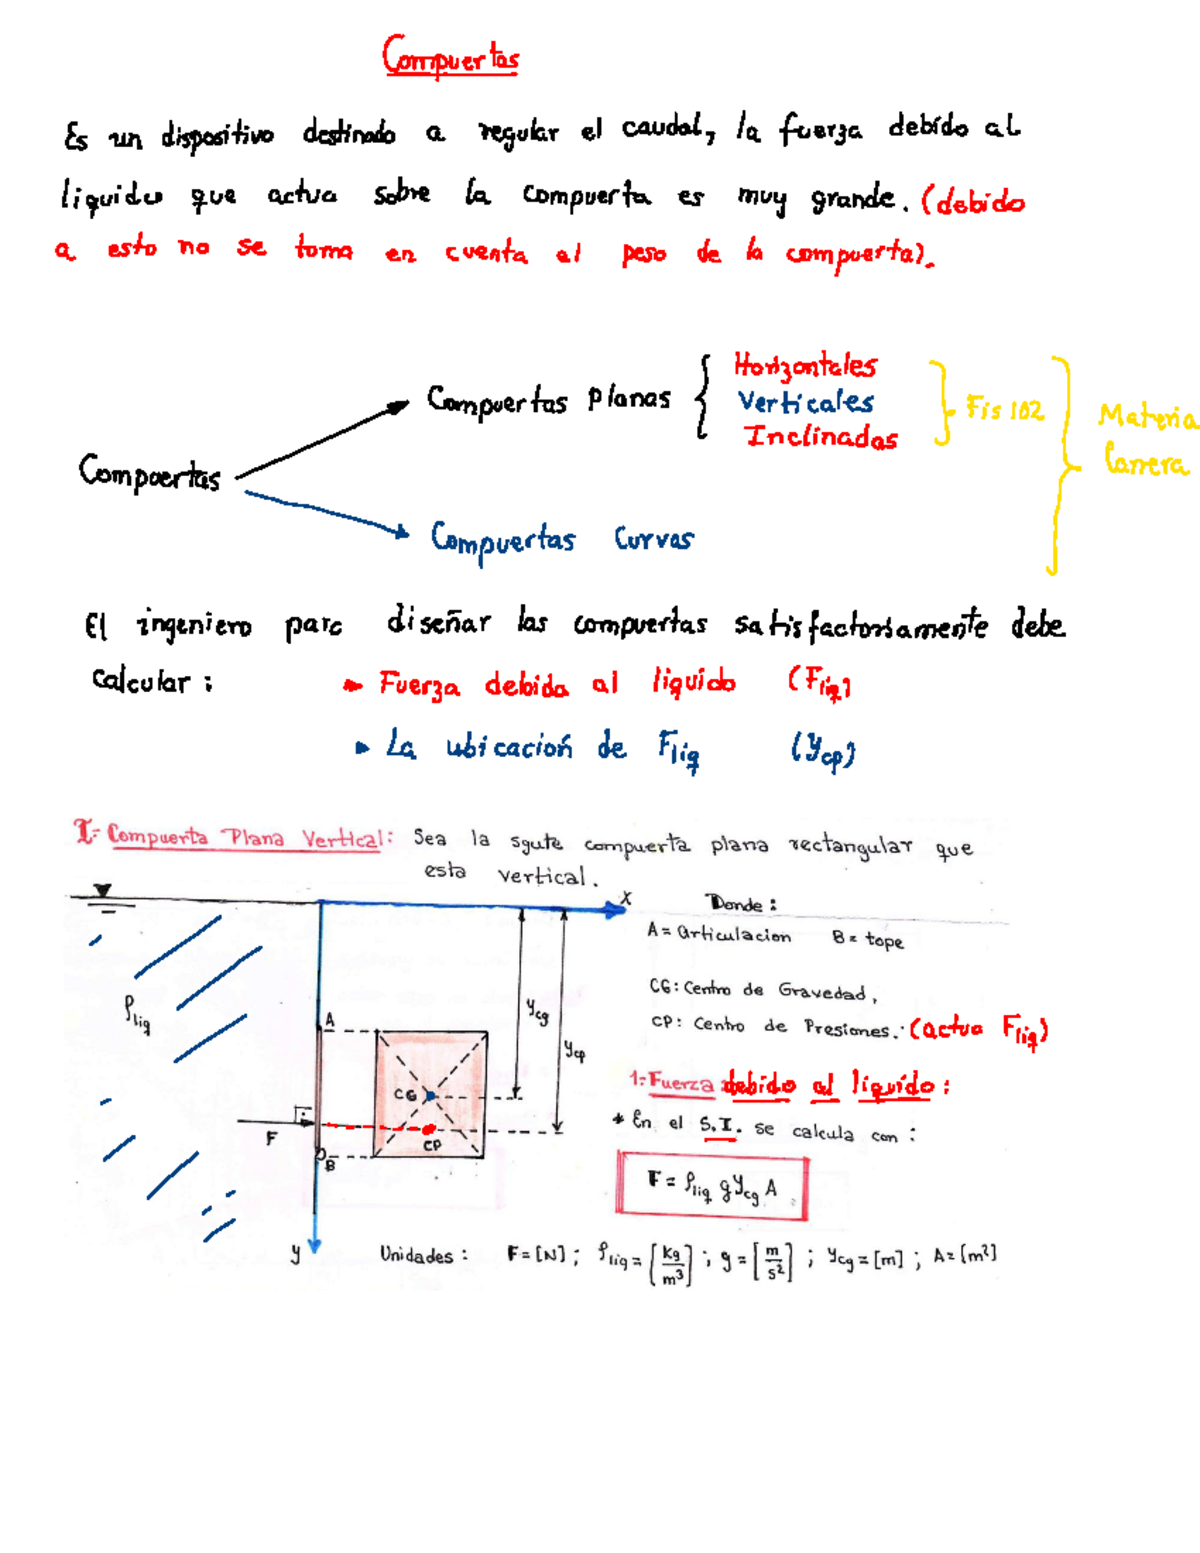 Compuertas
Es un dispositivo destinado a regular el caudal, la fuerza debido al
liquido que actua sobre la compuerta es muy grande. (debido
a esto no se toma en cuenta el peso de la compuerta).
Compuertas
Compuertas Planas
Horizontales
Verticales
Inclinadas
Fis 102
Materia
Carrera
Compuertas Curvas
El ingeniero para diseñar las compuertas satisfactoriamente debe
calcular:
Fuerza debida al liquido (Fliq)
La ubicación de Fliq (ycp)
I.- Compuerta Plana Vertical: Sea la sgute compuerta plana rectangular que
esta vertical.
X
Donde:
A = articulacion B = tope
CG: Centro de Gravedad,
CP: Centro de Presiones. (actua Fliq)
ρliq
A
ycg
ycp
CG
CP
F
B
y
1.- Fuerza debido al liquido:
* En el S.I. se calcula con:
F = ρliq g ycg A
Unidades: F = [N]; ρliq = [kg/m³]; g = [m/s²]; ycg = [m]; A = [m²]